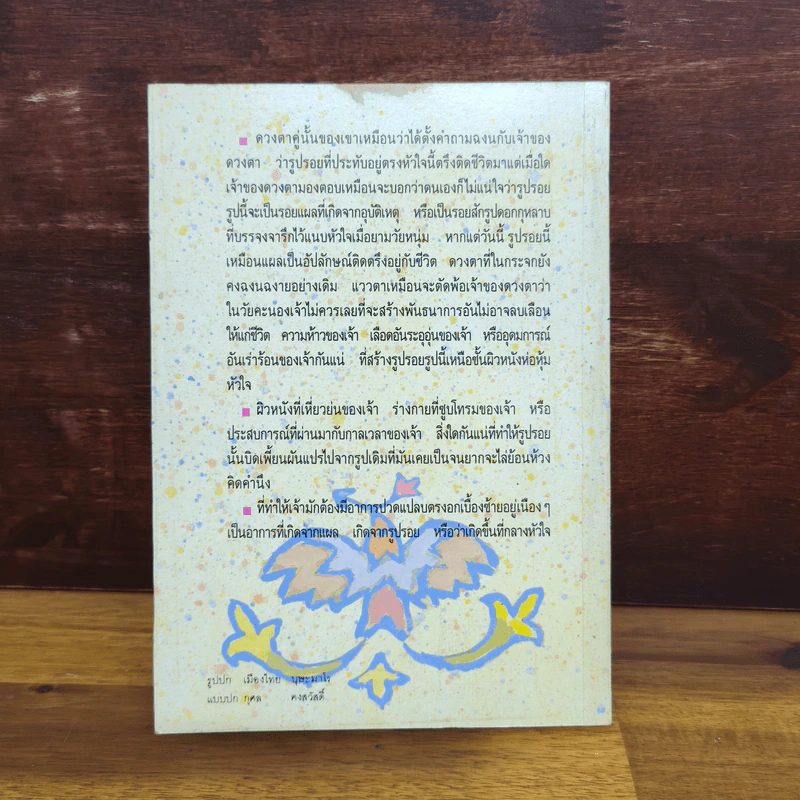 ดวงตาคู่นั้นของเขาเหมือนว่าได้ตั้งคำถามฉงนกับเจ้าของ
ดวงตา ว่ารูปรอยที่ประทับอยู่ตรงหัวใจนี้ตรึงติดชีวิตมาแต่เมื่อใด
เจ้าของดวงตามองตอบเหมือนจะบอกว่าตนเองก็ไม่แน่ใจว่ารูปรอย
รูปนี้จะเป็นรอยแผลที่เกิดจากอุบัติเหตุ หรือเป็นรอยสักรูปดอกกุหลาบ
ที่บรรจงจารึกไว้แนบหัวใจเมื่อยามวัยหนุ่ม หากแต่วันนี้ รูปรอยนี้
เหมือนแผลเป็นอัปลักษณ์ติดตรึงอยู่กับชีวิต ดวงตาที่ในกระจกยัง
คงฉงนฉงายอย่างเดิม แววตาเหมือนจะตัดพ้อเจ้าของดวงตาว่า
ในวัยคะนองเจ้าไม่ควรเลยที่จะสร้างพันธนาการอันไม่อาจลบเลือน
ให้แก่ชีวิต ความห้าวของเจ้า เลือดอันระอุอุ่นของเจ้า หรืออุดมการณ์
อันเร่าร้อนของเจ้ากันแน่ ที่สร้างรูปรอยรูปนี้เหนือชั้นผิวหนังห่อหุ้ม
หัวใจ
ผิวหนังที่เหี่ยวย่นของเจ้า ร่างกายที่ซูบโทรมของเจ้า หรือ
ประสบการณ์ที่ผ่านมากับกาลเวลาของเจ้า สิ่งใดกันแน่ที่ทำให้รูปรอย
นั้นบิดเพี้ยนผันแปรไปจากรูปเดิมที่มันเคยเป็นจนยากจะไล่ย้อนห้วง
คิดคำนึง
ที่ทำให้เจ้ามักต้องมีอาการปวดแปลบตรงอกเบื้องซ้ายอยู่เนือง ๆ
เป็นอาการที่เกิดจากแผล เกิดจากรูปรอย หรือว่าเกิดขึ้นที่กลางหัวใจ
รูปปก เมืองไทย บุษะมาโร
แบบปก กุศล คงสวัสดิ์